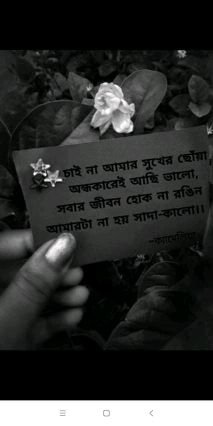 চাই না আমার সুখের ছোঁয়া
অন্ধকারেই আছি ভালো,
সবার জীবন হোক না রঙিন
আমারটা না হয় সাদা-কালো।।
-ক্যামেলিয়া